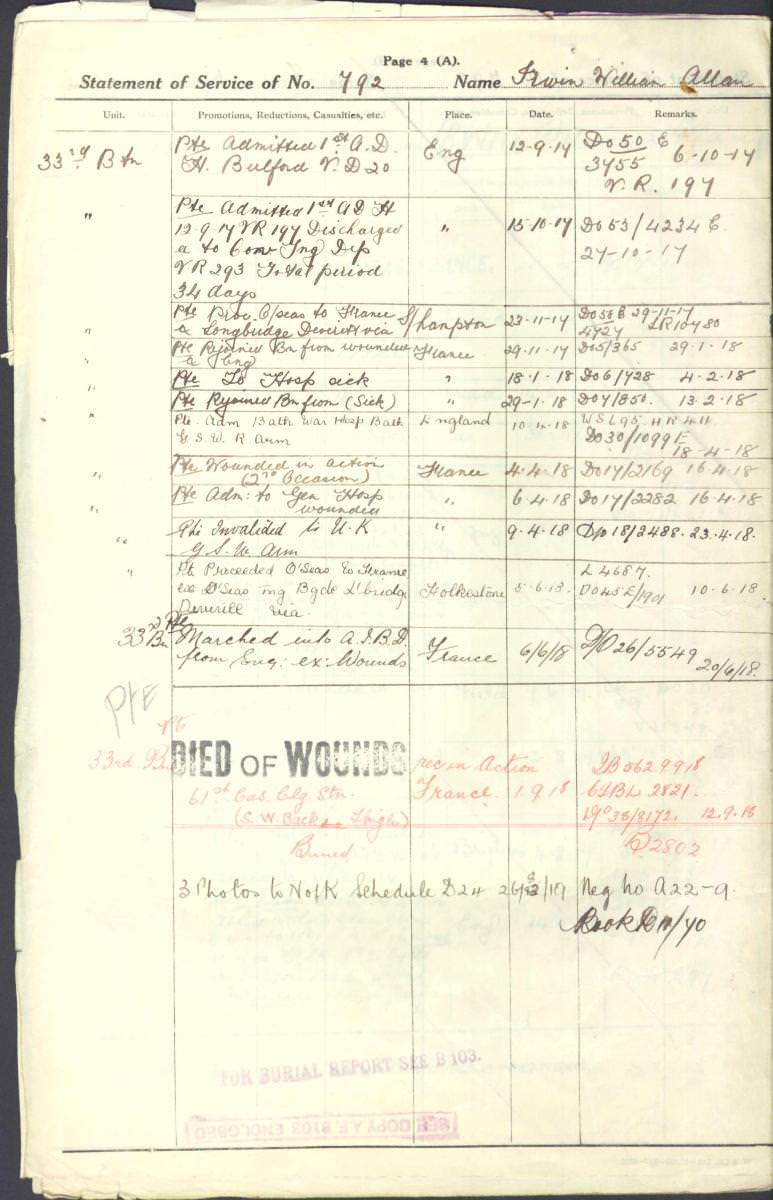 Page 4 (A).
Statement of Service of No. 792 Name Irwin William Allan
Unit. Promotions, Reductions, Casualties, etc. Place. Date. Remarks.
33rd Btn Pte Admitted 1st A.D. Eng 12-9-17 Do 50 E
H. Bulford V.D 20 3455 6-10-17
V.R. 197
" Pte Admitted 1st AD H " 15-10-17 Do 53/4234 E.
12-9-17 VR 197 Discharged 27-10-17
a to Com Tng Dep
VR 293 Total period
34 days
" Pte Proc. O/seas to France S/hampton 23-11-17 Do 56 E 29-11-17
ex Longbridge Deverill via 4727 LR 10480
" Pte Rejoined Bn from wounded France 29-11-17 Do 5/365 29-1-18
ex Eng
" Pte To Hosp sick " 18-1-18 Do 6/728 4-2-18
" Pte Rejoined Bn from (Sick) " 29-1-18 Do 7/850. 13-2-18
" Pte. Adm Bath War Hosp Bath England 10-4-18 WSL95 HR 411
G.S.W. R Arm Do 30/1099 E
18-4-18
" Pte Wounded in action France 4-4-18 Do 17/2169 16-4-18
(2nd Occasion)
" Pte Adm: to Gen Hosp " 6-4-18 Do 17/2282 16-4-18
wounded
" Pte Invalided to U.K " 9-4-18 Do 18/2488. 23-4-18.
G S.W Arm
" Pt Proceeded O'Seas to France L 4687.
ex O'Seas Tng Bgde L'bridge Folkestone 5-6-18 DO 45 E/1901 10-6-18
Deverill via
Pte
33rd Bn Marched into A.I.B.D. France 6/6/18 D/O 26/5549
from Eng: ex: Wounds 20/6/18.
Pte
Pte
33rd Bn DIED OF WOUNDS rec in Action
61st Cas. Clg. Stn. France. 1.9.18
(S.W. Back Thighs) 12.9.18
Buried B2802
3 Photos to NofK Schedule D24 Neg no A22-9.
FOR BURIAL REPORT SEE B 103.
SEE COPY A.F. B103 ENCLOSED